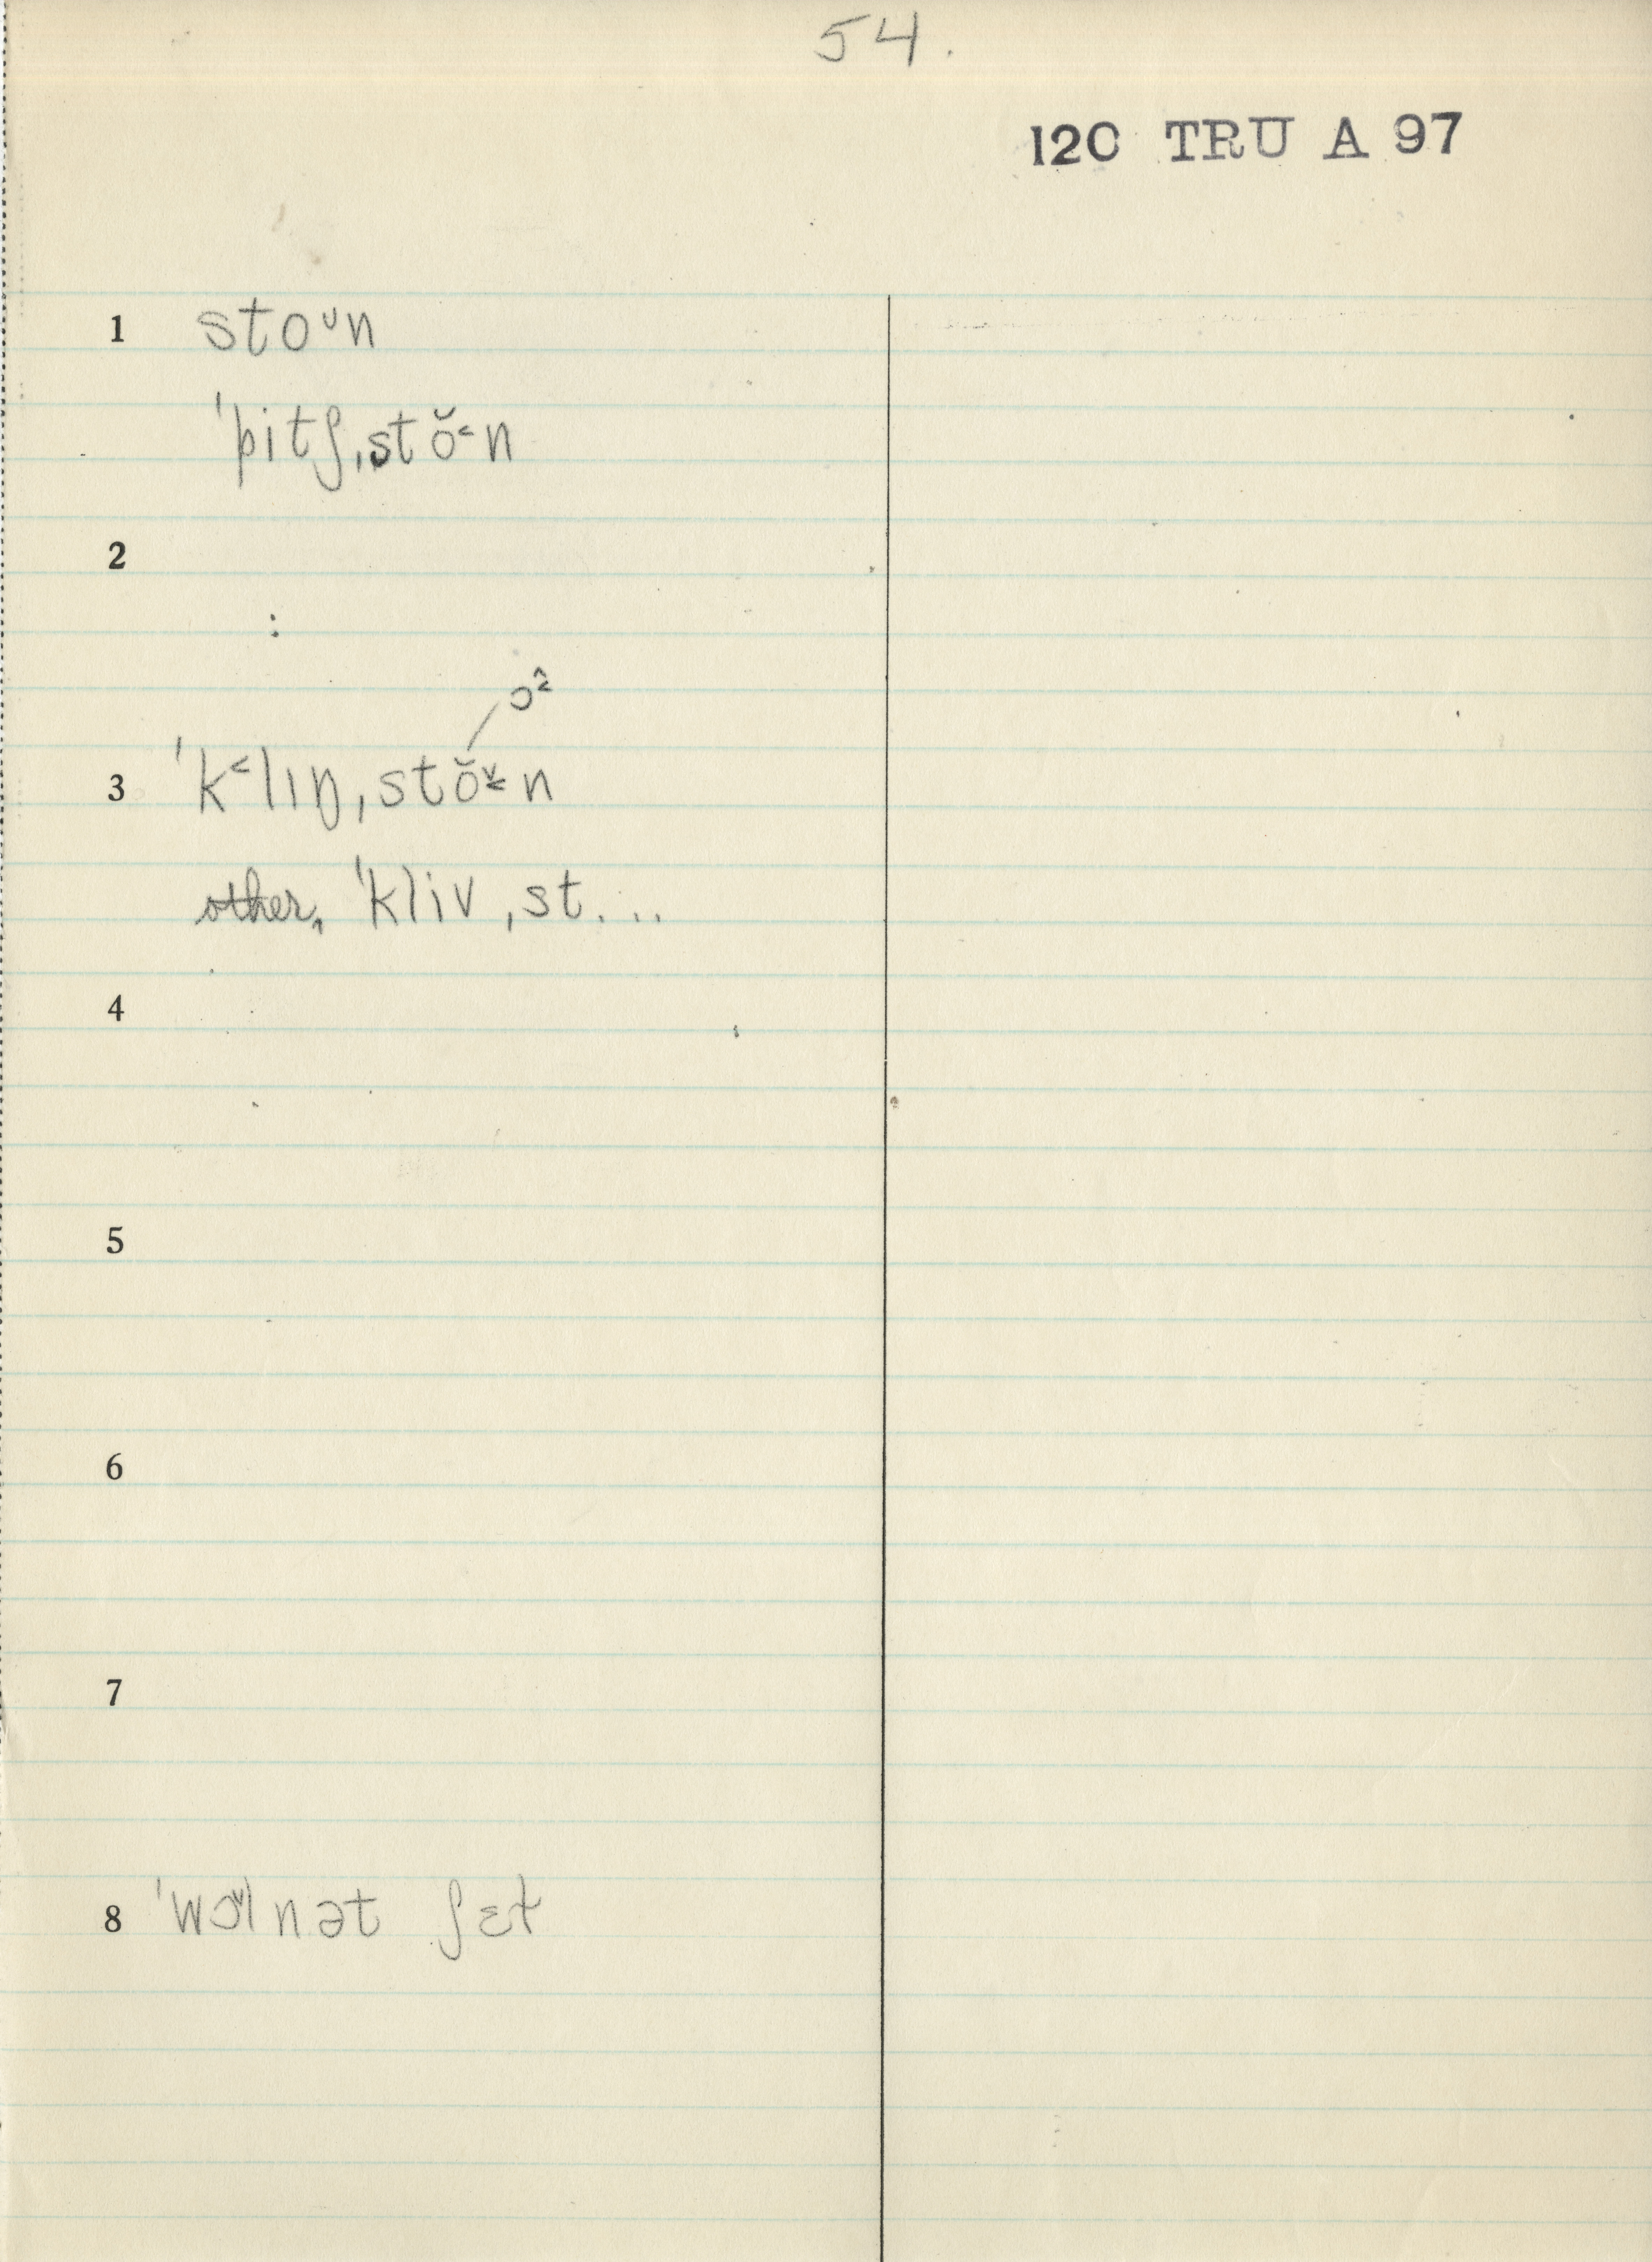 54.
120 TRU A 97
1 stoᴜn
ˈpitʃˌstŏ˂n
2
ɔ
3 ˈk˂lɪŋˌstŏn
other, ˈklivˌst...
4
5
6
7
8 ˈwɔlnət ʃɛt